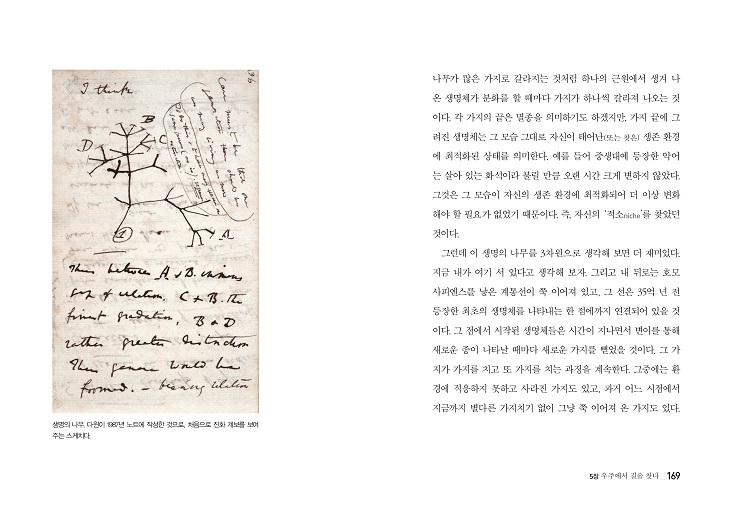 36
I think
case must be that one
generation then should be
as many living as now
B
C
D
A
1
Thus between A & B. immense
gap of relation. C & B. the
finest gradation, B & D
rather greater distinction
Thus genera would be
formed. — bearing relation
생명의 나무. 다윈이 1987년 노트에 작성한 것으로, 처음으로 진화 계보를 보여
주는 스케치다.
나무가 많은 가지로 갈라지는 것처럼 하나의 근원에서 생겨 나
온 생명체가 분화를 할 때마다 가지가 하나씩 갈라져 나오는 것
이다. 각 가지의 끝은 멸종을 의미하기도 하겠지만, 가지 끝에 그
려진 생명체는 그 모습 그대로 자신이 태어난(또는 찾은) 생존 환경
에 최적화된 상태를 의미한다. 예를 들어 중생대에 등장한 악어
는 살아 있는 화석이라 불릴 만큼 오랜 시간 크게 변하지 않았다.
그것은 그 모습이 자신의 생존 환경에 최적화되어 더 이상 변화
해야 할 필요가 없었기 때문이다. 즉, 자신의 '적소niche'를 찾았던
것이다.
그런데 이 생명의 나무를 3차원으로 생각해 보면 더 재미있다.
지금 내가 여기 서 있다고 생각해 보자. 그리고 내 뒤로는 호모
사피엔스를 낳은 계통선이 쭉 이어져 있고, 그 선은 35억 년 전
등장한 최초의 생명체를 나타내는 한 점에까지 연결되어 있을 것
이다. 그 점에서 시작된 생명체들은 시간이 지나면서 변이를 통해
새로운 종이 나타날 때마다 새로운 가지를 뻗었을 것이다. 그 가
지가 가지를 치고 또 가지를 치는 과정을 계속한다. 그중에는 환
경에 적응하지 못하고 사라진 가지도 있고, 과거 어느 시점에서
지금까지 별다른 가지치기 없이 그냥 쭉 이어져 온 가지도 있다.
5장 우주에서 길을 찾다 _ 169